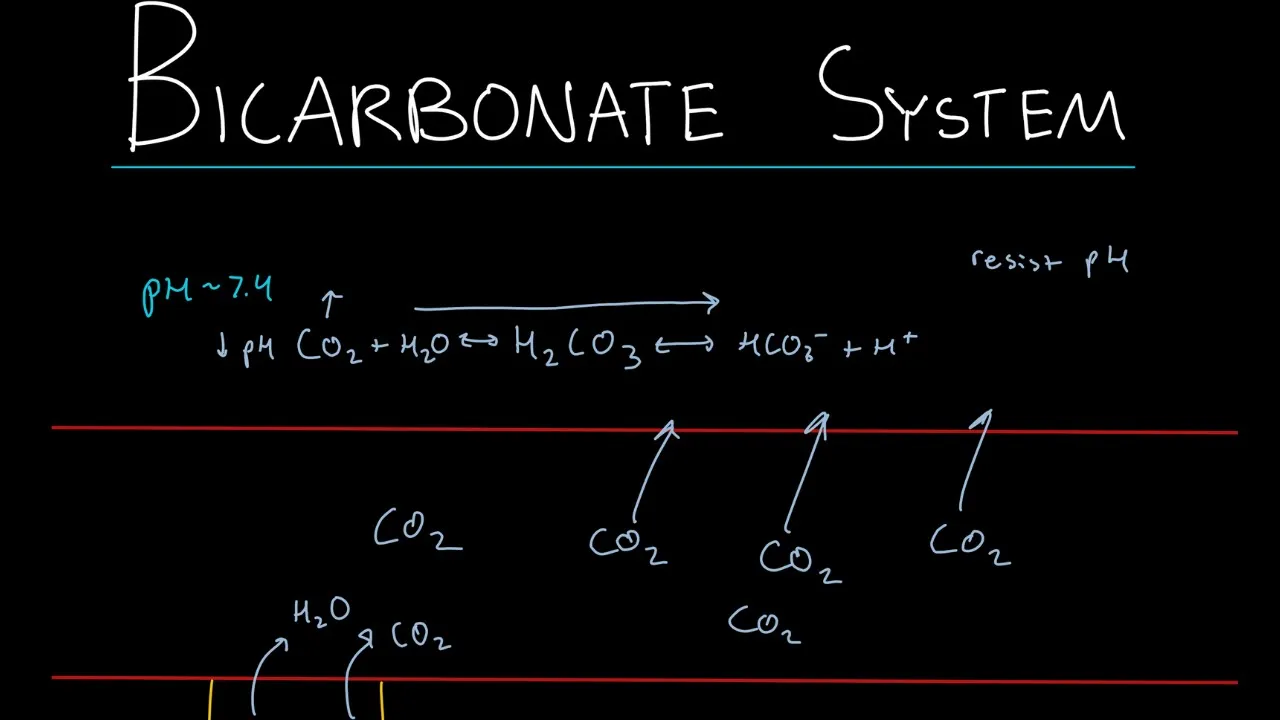 BICARBONATE SYSTEM
resist pH
pH ~ 7.4
↑
↓ pH CO₂ + H₂O ↔ H₂CO₃ ↔ HCO₃⁻ + H⁺
CO₂ CO₂ CO₂ CO₂
H₂O CO₂ CO₂